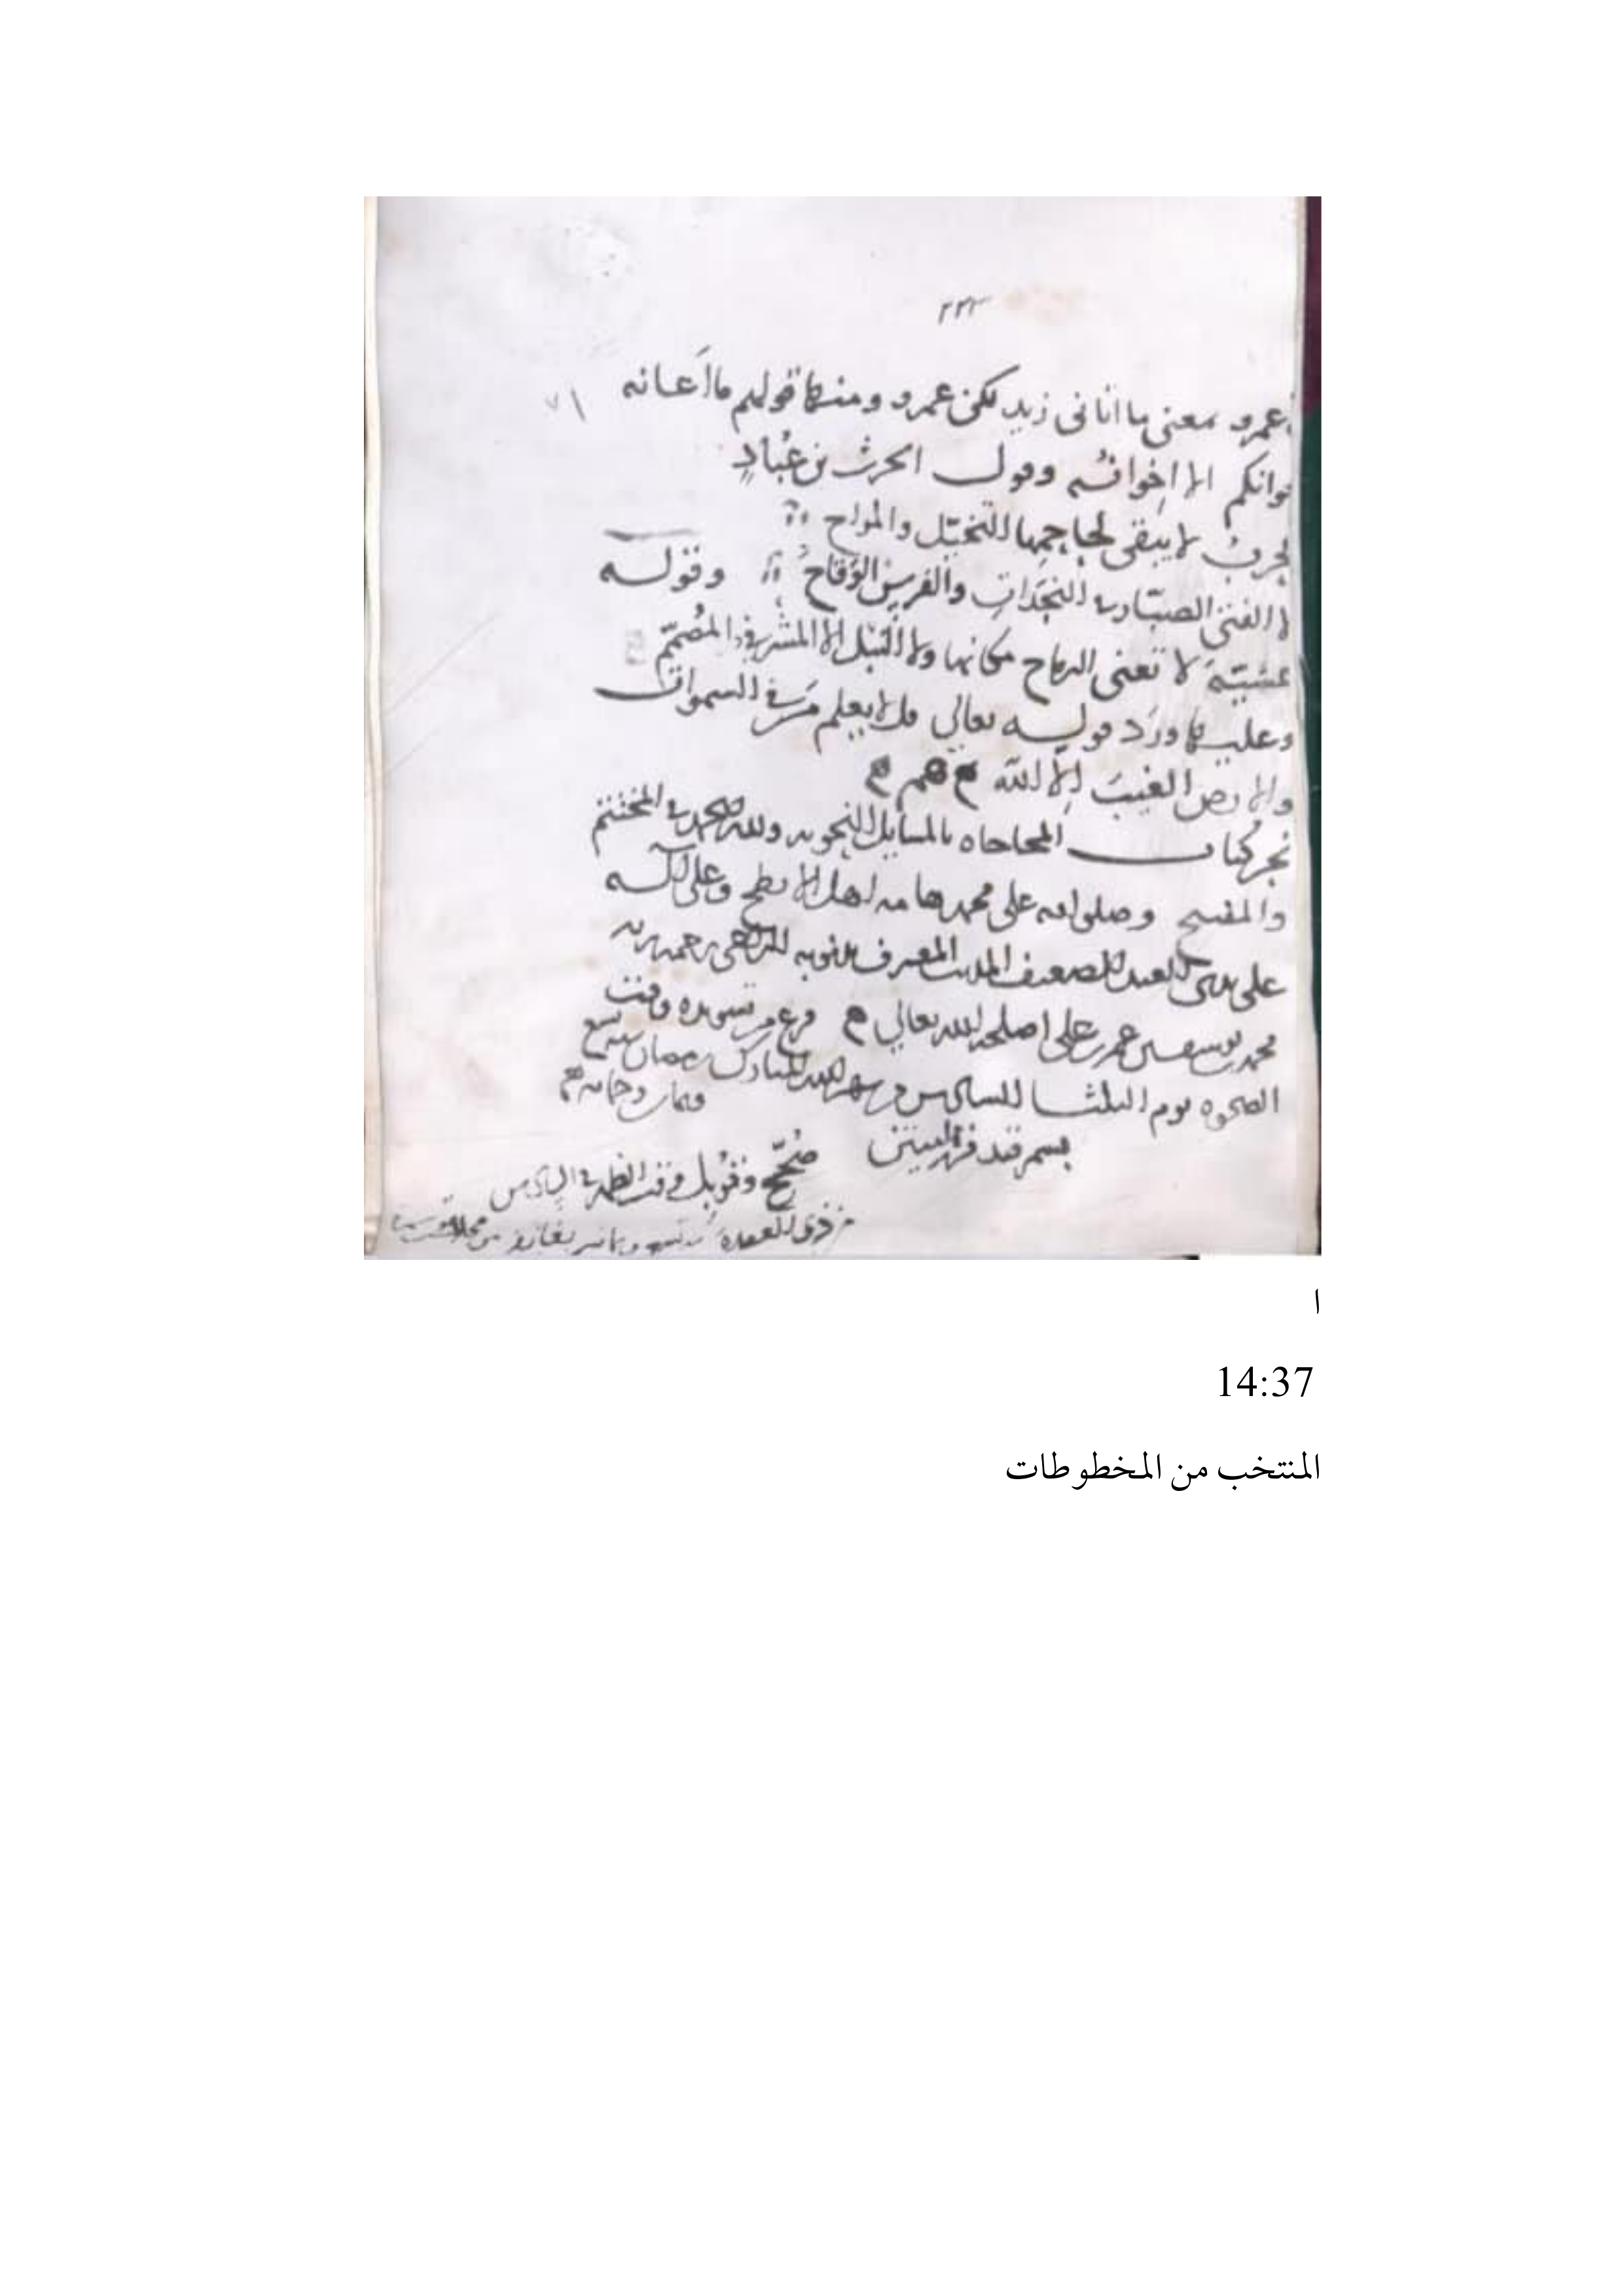 ٢٢٣
عمرو بمعنى ما اتانى زيد لكن عمرو ومنه قولهم ما أعانه
اخوانكم الا اخوانه وقول الحرث بن عُبادٍ
لا يبقى لجاحمها التخيّل والمراح
الا الفتى الصبّار فى النجدات والفرس الوَقاحُ وقوله
عشيّةَ لا تغنى الرماح مكانها ولا النبل الا المشرفى المُصمّم
وعليه ورد قوله تعالى قل لا يعلم من فى السموات
والارض الغيبَ إلا الله
كتاب المحاجاه بالمسايل النحويه ولله الحمد فى المختتم
والمفتتح وصلواته على محمد هامه اهل الابطح وعلى آله
على يدى العبد الضعيف المذنب المعترف بذنوبه الراجى رحمة ربه
محمد بن يوسف بن عمر بن على اصلحه الله تعالى فرغ من تسويده وقت
الضحوه يوم الثلثا السادس من شهر الله المبارك رمضان سنه تسع
وثمان وخمسمايه
بسمرقند
صُحّح وقُوبل وقت الظهر فى السادس
من ذى القعدة
ا
14:37
المنتخب من المخطوطات